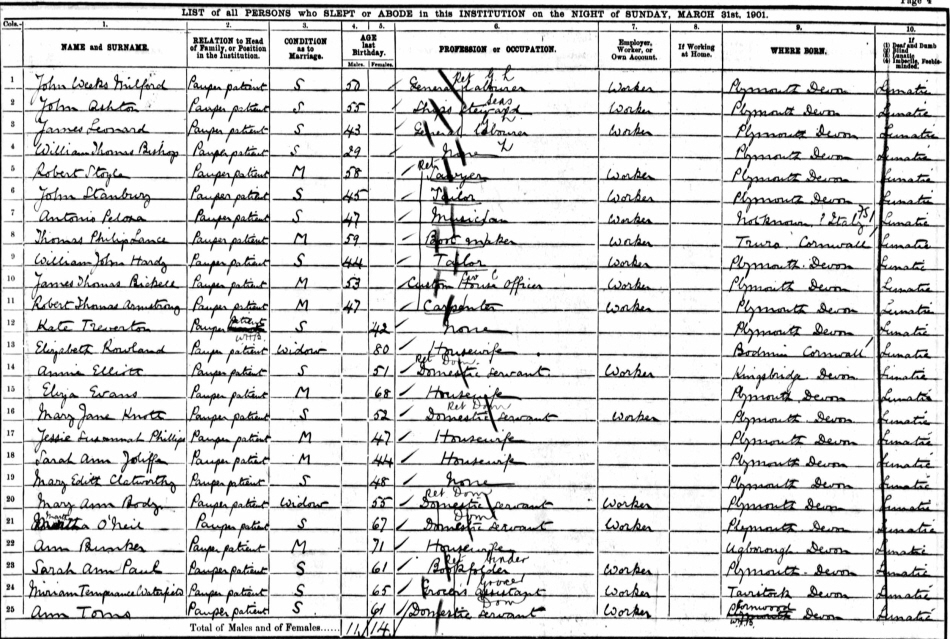 Page 4
LIST of all PERSONS who SLEPT or ABODE in this INSTITUTION on the NIGHT of SUNDAY, MARCH 31st, 1901.
Cols.— 1. 2. 3. 4. 5. 6. 7. 8. 9. 10.
NAME and SURNAME. RELATION to Head of Family, or Position in the Institution. CONDITION as to Marriage. AGE last Birthday. Males. Females. PROFESSION or OCCUPATION. Employer, Worker, or Own Account. If Working at Home. WHERE BORN. If (1) Deaf and Dumb (2) Blind (3) Lunatic (4) Imbecile, Feeble-minded.
1 John Weeks Milford Pauper patient S 50 General Labourer Worker Plymouth Devon Lunatic
2 John Ashton Pauper patient S 55 Ships Steward Seas Worker Plymouth Devon Lunatic
3 James Leonard Pauper patient S 43 General Labourer Worker Plymouth Devon Lunatic
4 William Thomas Bishop Pauper patient S 29 None Plymouth Devon Lunatic
5 Robert Pauper patient M 58 Ret Sawyer Worker Plymouth Devon Lunatic
6 John Stanbury Pauper patient S 45 Tailor Worker Plymouth Devon Lunatic
7 Antonio Pauper patient S 47 Musician Worker Not known ? Italy Lunatic
8 Thomas Philip Lance Pauper patient M 59 Boot maker Worker Truro Cornwall Lunatic
9 William John Hardy Pauper patient S 44 Tailor Worker Plymouth Devon Lunatic
10 James Thomas Bickell Pauper patient M 53 Custom House Officer Worker Plymouth Devon Lunatic
11 Robert Thomas Armstrong Pauper patient M 47 Carpenter Worker Plymouth Devon Lunatic
12 Kate Treverton Pauper patient S 42 None Plymouth Devon Lunatic
13 Elizabeth Rowland Pauper patient Widow 80 Housewife Bodmin Cornwall Lunatic
14 Annie Elliott Pauper patient S 51 Ret Dom Domestic Servant Worker Kingsbridge Devon Lunatic
15 Eliza Evans Pauper patient M 68 Housewife Plymouth Devon Lunatic
16 Mary Jane Knott Pauper patient S 52 Ret Dom Domestic Servant Worker Plymouth Devon Lunatic
17 Jessie Susannah Phillips Pauper patient M 47 Housewife Plymouth Devon Lunatic
18 Sarah Ann Joliffe Pauper patient M 44 Housewife Plymouth Devon Lunatic
19 Mary Edith Clatworthy Pauper patient S 48 None Plymouth Devon Lunatic
20 Mary Ann Body Pauper patient Widow 55 Ret Dom Domestic Servant Worker Plymouth Devon Lunatic
21 O'Neil Pauper patient S 67 Dom Domestic Servant Worker Plymouth Devon Lunatic
22 Ann Bunker Pauper patient M 71 Housewife Ugborough Devon Lunatic
23 Sarah Ann Paul Pauper patient S 61 Bookfolder Worker Plymouth Devon Lunatic
24 Miriam Temperance Waterfield Pauper patient S 65 Grocer Grocers Assistant Worker Tavistock Devon Lunatic
25 Ann Toms Pauper patient S 61 Dom Domestic Servant Worker Cornwood Devon Lunatic
Total of Males and of Females...... 11 14